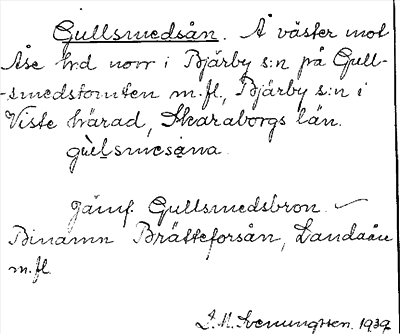 Gullsmedsån. Å väster mot
Åse hrd norr i Bjärby s:n på Gull-
-smedstomten m.fl., Bjärby s:n i
Viste härad, Skaraborgs län.
gullsmesána.
Jämf. Gullsmedsbron. –
Binamn Brätteforsån, Landaån
m.fl.
1939